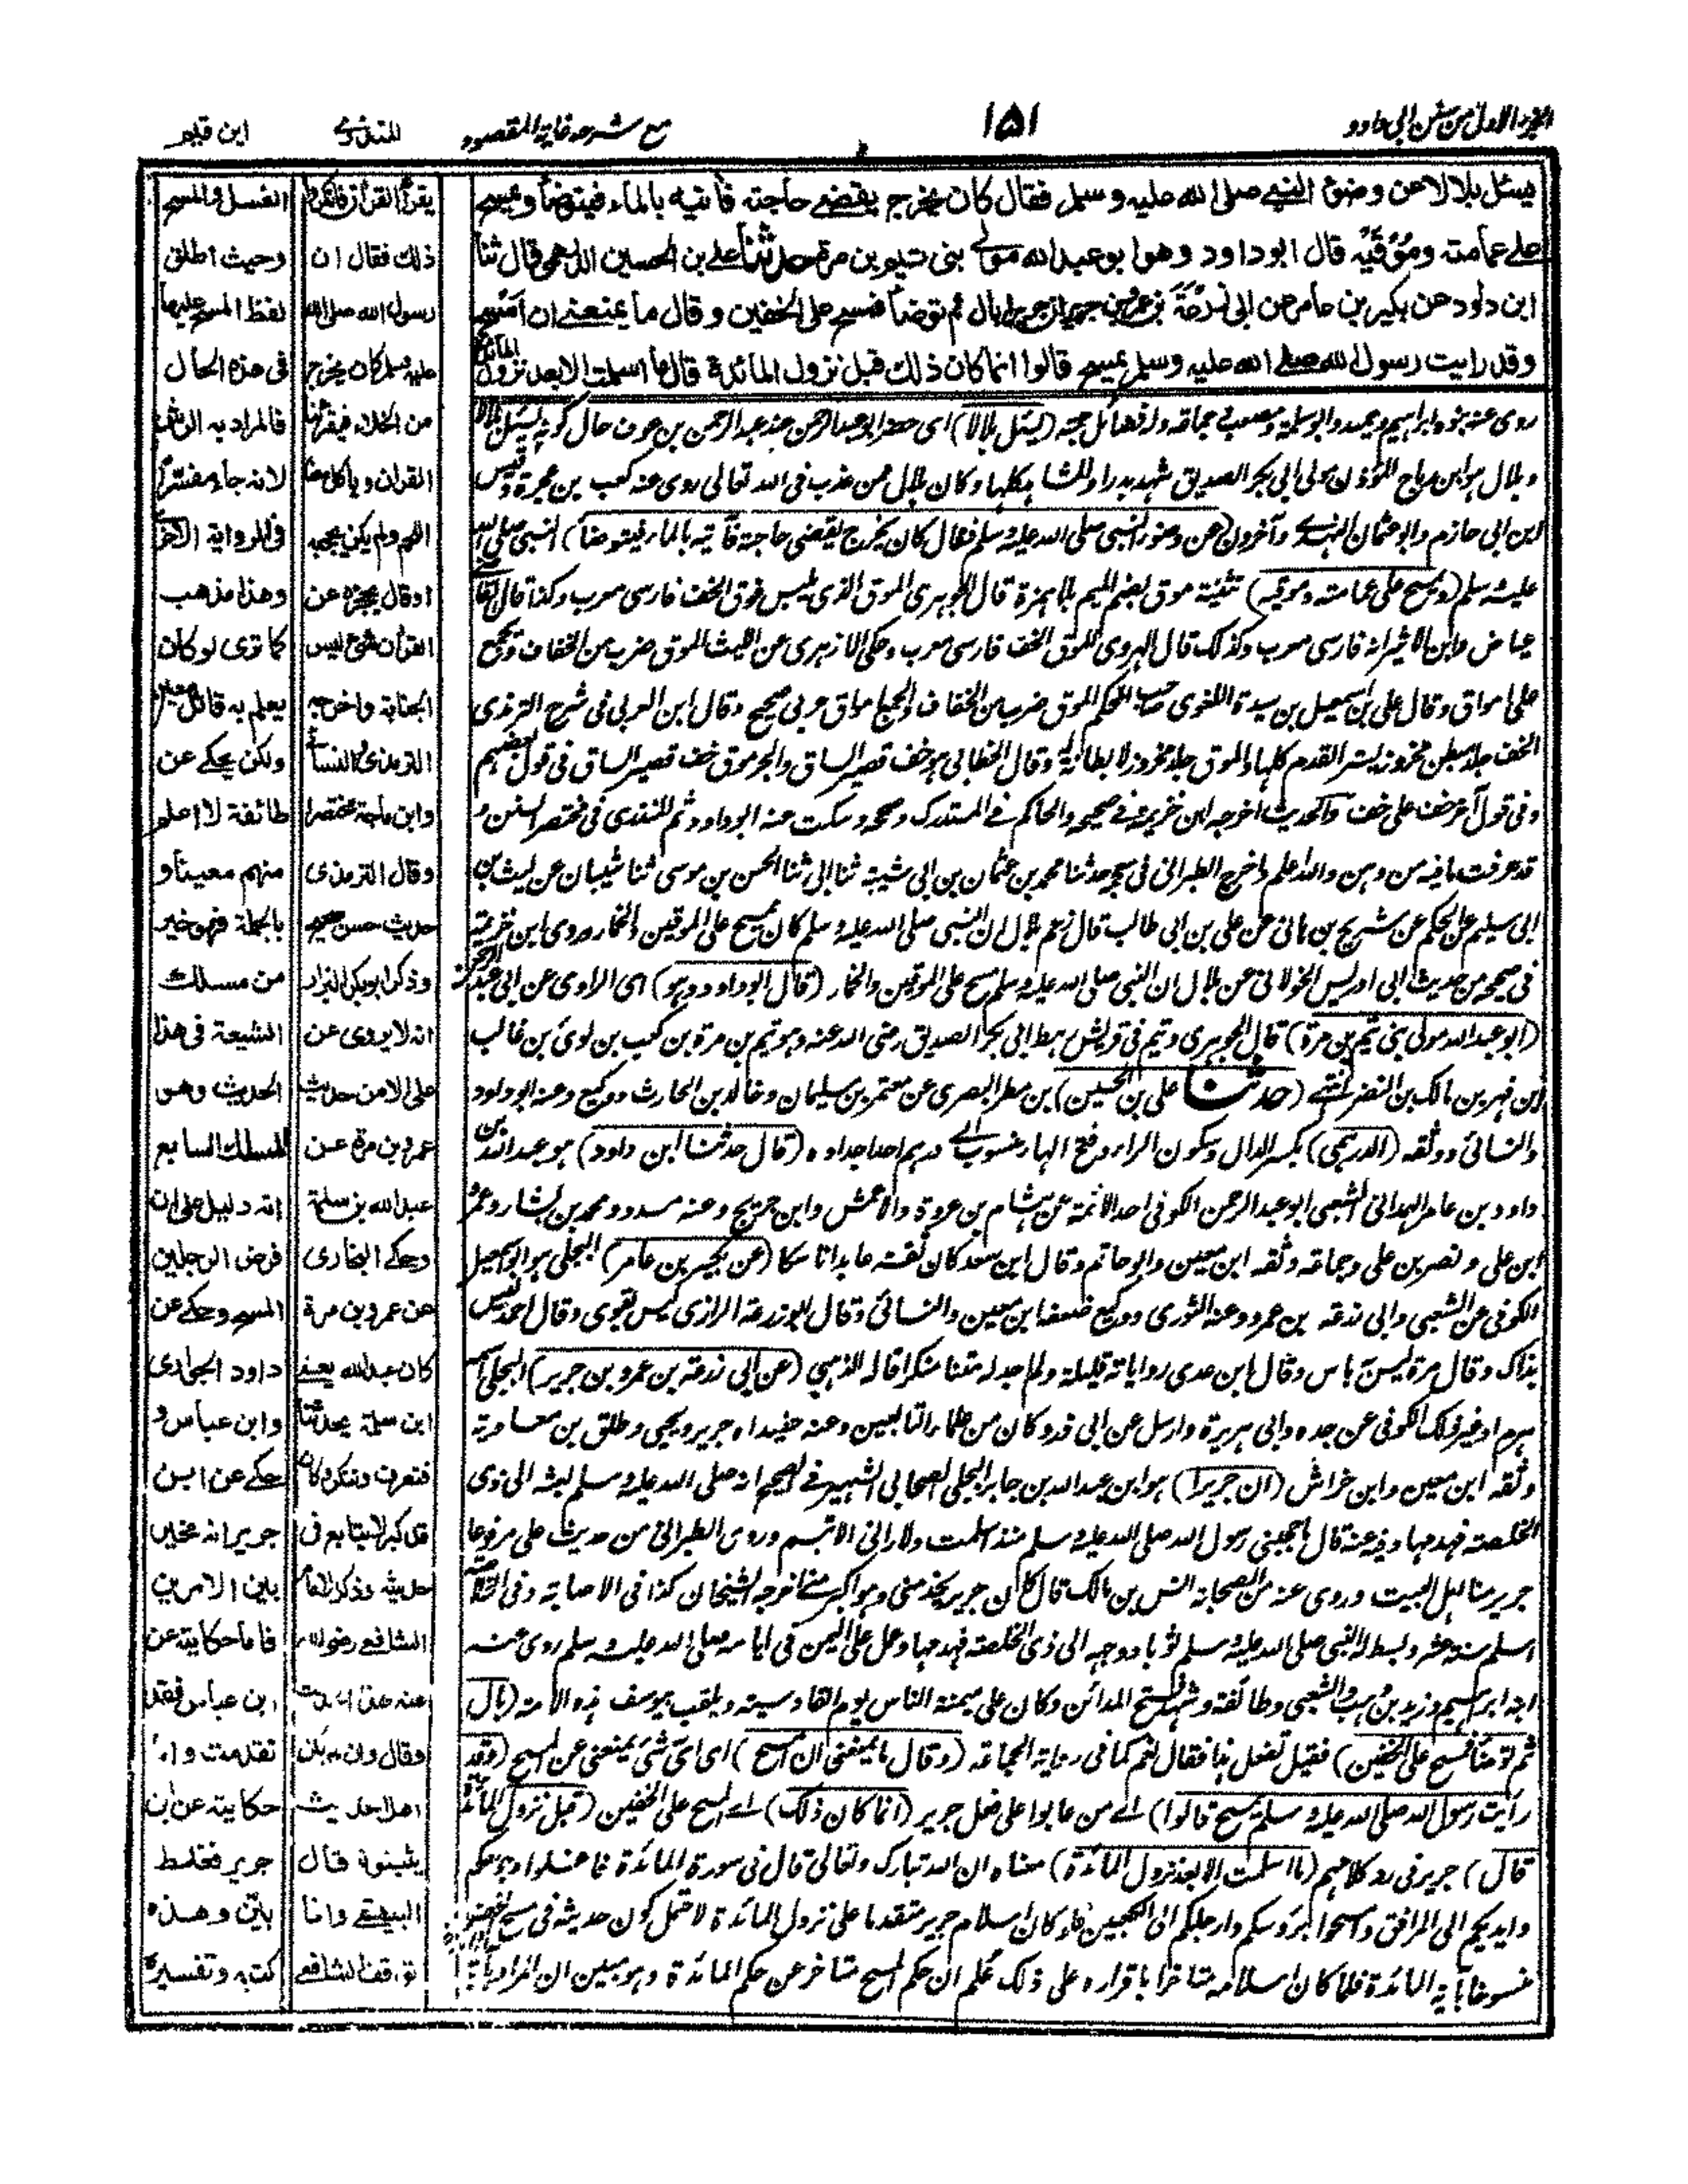 الجزء الاول من سنن ابی داود
۱۵۱
مع شرحه غاية المقصود
المنذری
ابن قیم
يسئل بلالا عن وضوء النبي صلى الله عليه وسلم فقال كان يخرج يقضي حاجته فآتيه بالماء فيتوضأ ويمسح
على عمامته وموقيه قال ابوداود وهو ابو عبد الله مولى بني تيم بن مرة حدثنا علي بن الحسين الدرهمي قال ثنا
ابن داود عن بكير بن عامر عن ابى زرعة بن عمرو بن جرير ان جريرا بال ثم توضأ فمسح على الخفين وقال ما يمنعني ان امسح
وقد رايت رسول الله صلى الله عليه وسلم يمسح قالوا انما كان ذلك قبل نزول المائدة قال ما اسلمت الا بعد نزول المائدة
روى عنه بنوه ابراهيم وحميد وابو سلمة ومصعب وجماعة وله فضائل جمة (يسئل بلالا) اى حضر ابو عبد الرحمن عند عبد الرحمن بن عوف حال كونه يسئل بلالا
وبلال هو ابن رباح المؤذن مولى ابى بكر الصديق شهد بدرا والمشاهد كلها وكان بلال ممن عذب فى الله تعالى روى عنه كعب بن عجرة وقيس
ابن ابى حازم وابو عثمان النهدي وآخرون (عن وضوء النبي صلى الله عليه وسلم فقال كان يخرج يقضى حاجته فآتيه بالماء فيتوضأ) النبي صلى الله
عليه وسلم (ويمسح على عمامته وموقيه) تثنية موق بضم الميم بلا همزة قال الجوهرى الموق الذى يلبس فوق الخف فارسى معرب وكذا قال القاضي
عياض وابن الاثير انه فارسى معرب وكذلك قال الهروى الموق الخف فارسى معرب وحكى الازهرى عن الليث الموق ضرب من الخفاف ويجمع
على امواق وقال على بن اسمعيل بن سيدة اللغوى صاحب المحكم الموق ضرب من الخفاف والجمع امواق عربى صحيح وقال ابن العربى فى شرح الترمذى
الخف جلد مبطن مخروز يستر القدم كلها والموق جلد مخروز لا بطانة له وقال الخطابى هو خف قصير الساق والجرموق خف قصير الساق فى قول بعضهم
وفى قول آخر خف على خف والحديث اخرجه ابن خزيمة فى صحيحه والحاكم فى المستدرك وصححه وسكت عنه ابو داود ثم المنذرى فى مختصر السنن و
قد عرفت ما فيه من وهن والله اعلم واخرج الطبرانى فى معجمه حدثنا محمد بن عثمان بن ابى شيبة ثنا ابى ثنا الحسن بن موسى ثنا شيبان عن ليث بن
ابى سليم عن الحكم عن شريح بن هانئ عن على بن ابى طالب قال زعم بلال ان النبى صلى الله عليه وسلم كان يمسح على الموقين والخمار وروى ابن خزيمة
فى صحيحه من حديث ابى ادريس الخولانى عن بلال ان النبى صلى الله عليه وسلم مسح على الموقين والخمار (قال ابو داود وهو) اى الراوى عن ابى عبد الرحمن
(ابو عبد الله مولى بنى تيم بن مرة) قال الجوهرى وتيم فى قريش رهط ابى بكر الصديق رضى الله عنه وهو تيم بن مرة بن كعب بن لؤى بن غالب
ابن فهر بن مالك بن النضر انتهى (حدثنا على بن الحسين) بن مطر البصرى عن معتمر بن سليمان وخالد بن الحارث ووكيع وعنه ابو داود
والنسائى ووثقه (الدرهمى) بكسر الدال وسكون الراء وفتح الهاء منسوب الى درهم احد اجداده (قال حدثنا ابن داود) هو عبد الله بن
داود بن عامر الهمدانى الشعبى ابو عبد الرحمن الكوفى احد الائمة عن هشام بن عروة والاعمش وابن جريج وعنه مسدد ومحمد بن بشار وعمرو
ابن على ونصر بن على وجماعة وثقه ابن معين وابو حاتم وقال ابن سعد كان ثقة عابدا ناسكا (عن بكير بن عامر) البجلى هو ابو اسمعيل
الكوفى عن الشعبى وابى زرعة بن عمرو وعنه الثورى ووكيع ضعفه ابن معين والنسائى وقال ابو زرعة الرازى ليس بقوى وقال احمد ليس
بذاك وقال مرة ليس به باس وقال ابن عدى رواياته قليلة ولم اجد له متنا منكرا قاله الذهبي (عن ابى زرعة بن عمرو بن جرير) البجلى اسمه
هرم او غير ذلك الكوفى عن جده وابى هريرة وارسل عن ابى ذر وكان من علماء التابعين وعنه حفيداه جرير ويحيى وطلق بن معاوية
وثقه ابن معين وابن خراش (ان جريرا) هو ابن عبد الله بن جابر البجلى الصحابى الشهير فى الصحيح انه صلى الله عليه وسلم بعثه الى ذى
الخلصة فهدمها وفيه عنه قال ما حجبنى رسول الله صلى الله عليه وسلم منذ اسلمت ولا رانى الا تبسم وروى الطبرانى من حديث على مرفوعا
جرير منا اهل البيت وروى عنه من الصحابة انس بن مالك قال كان جرير يخدمنى وهو اكبر منى اخرجه الشيخان كذا فى الاصابة وفى الخلاصة
اسلم سنة عشر وبسط له النبى صلى الله عليه وسلم ثوبا ووجهه الى ذى الخلصة فهدمها وعمل على اليمن فى ايامه صلى الله عليه وسلم روى عنه
ابنه ابراهيم وزيد بن وهب والشعبى وطائفة وشهد فتح المدائن وكان على ميمنة الناس يوم القادسية ويلقب بيوسف هذه الامة (بال
ثم توضأ فمسح على الخفين) فقيل تفعل هذا فقال نعم كما فى رواية الجماعة (وقال ما يمنعنى ان امسح) اى اىّ شئ يمنعنى عن المسح (وقد
رأيت رسول الله صلى الله عليه وسلم يمسح قالوا) اے من عابوا على فعل جرير (انما كان ذلك) اے المسح على الخفين (قبل نزول المائدة
قال) جرير فى رد كلامهم (ما اسلمت الا بعد نزول المائدة) معناه ان الله تبارك وتعالى قال فى سورة المائدة فاغسلوا وجوهكم
وايديكم الى المرافق وامسحوا برؤسكم وارجلكم الى الكعبين فلو كان اسلام جرير متقدما على نزول المائدة لاحتمل كون حديثه فى مسح الخف
منسوخا بآية المائدة فلما كان اسلامه متاخرا باقراره على ذلك علم ان حكم المسح متاخر عن حكم المائدة وهو مبين ان المراد بآية
يقرأ القرآن فانكروا
ذلك فقال ان
رسول الله صلى الله
عليه وسلم كان يخرج
من الخلاء فيقرئنا
القران وياكل معنا
اللحم ولم يكن يحجبه
او قال يحجزه عن
القرأن شئ ليس
الجنابة واخرجه
الترمذى والنسائى
وابن ماجة مختصرا
وقال الترمذى
حديث حسن صحيح
وذكر ابو بكر البزار
انه لا يروى عن
على الا من حديث
عمرو بن مرة عن
عبد الله بن سلمة
وحكى البخارى
عن عمرو بن مرة
كان عبد الله يعنى
ابن سلمة يحدثنا
فتعرف وتنكر وكان
قد كبر لا يتابع فى
حديثه وذكر الامام
الشافعى رضى الله
عنه هذا الحديث
وقال وان لم يكن
اهل الحديث
يثبتونه قال
البيهقى وانما
توقف الشافعى
الغسل والمسح
وحيث اطلق
لفظ المسح عليها
فى هذه الحال
فالمراد به الرش
لانه جاء مفسرا
فى الرواية الاخرى
وهذا مذهب
كما ترى لو كان
يعلم به قائل معين
ولكن يحكى عن
طائفة لا اعلم
منهم معينا و
بالجملة فهو خير
من مسلك
الشيعة فى هذا
الحديث وهو
المسلك السابع
انه دليل على ان
فرض الرجلين
المسح وحكى عن
داود الجوارى
وابن عباس و
حكى عن ابن
جرير انه مخير
بين الامرين
فاما حكايته عن
ابن عباس فقد
تقدمت واما
حكايته عن ابن
جرير فغلط
بين وهذه
كتبه وتفسيره